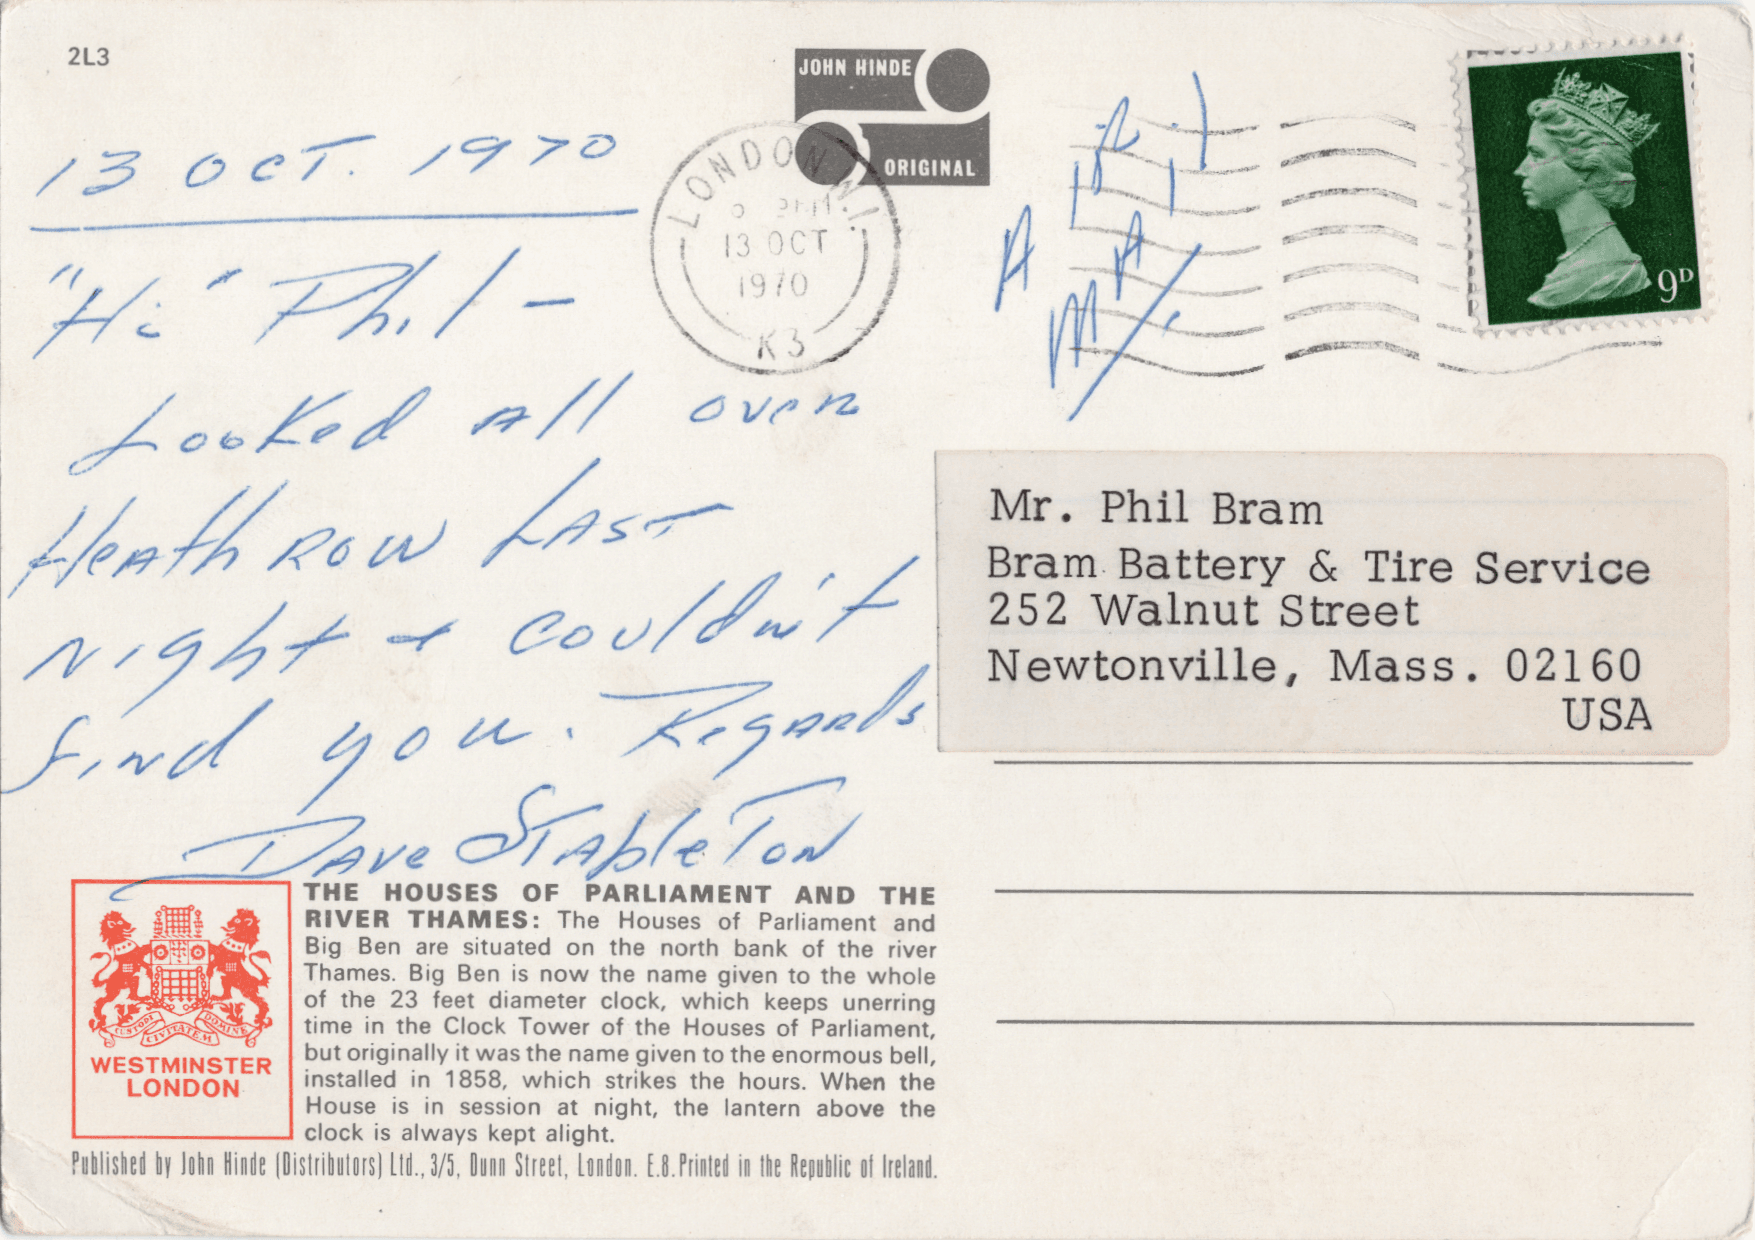 2L3
JOHN HINDE
ORIGINAL
13 OCT. 1970
"Hi" Phil -
Looked all over
Heathrow Last
night & couldn't
find you. Regards
Dave Stapleton
LONDON W1
13 OCT
1970
K3
AIR
MAIL
9D
Mr. Phil Bram
Bram Battery & Tire Service
252 Walnut Street
Newtonville, Mass. 02160
USA
CUSTODI CIVITATEM DOMINE
WESTMINSTER
LONDON
THE HOUSES OF PARLIAMENT AND THE
RIVER THAMES: The Houses of Parliament and
Big Ben are situated on the north bank of the river
Thames. Big Ben is now the name given to the whole
of the 23 feet diameter clock, which keeps unerring
time in the Clock Tower of the Houses of Parliament,
but originally it was the name given to the enormous bell,
installed in 1858, which strikes the hours. When the
House is in session at night, the lantern above the
clock is always kept alight.
Published by John Hinde (Distributors) Ltd., 3/5, Dunn Street, London. E.8. Printed in the Republic of Ireland.